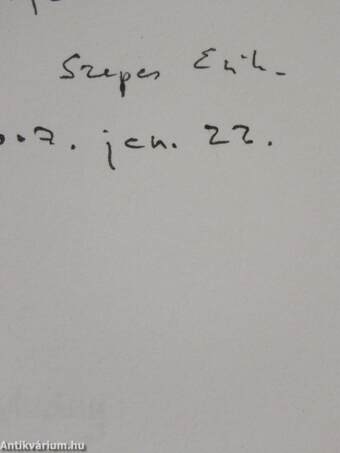 Szepes Erik.
07. jan. 22.
Antikvárium.hu